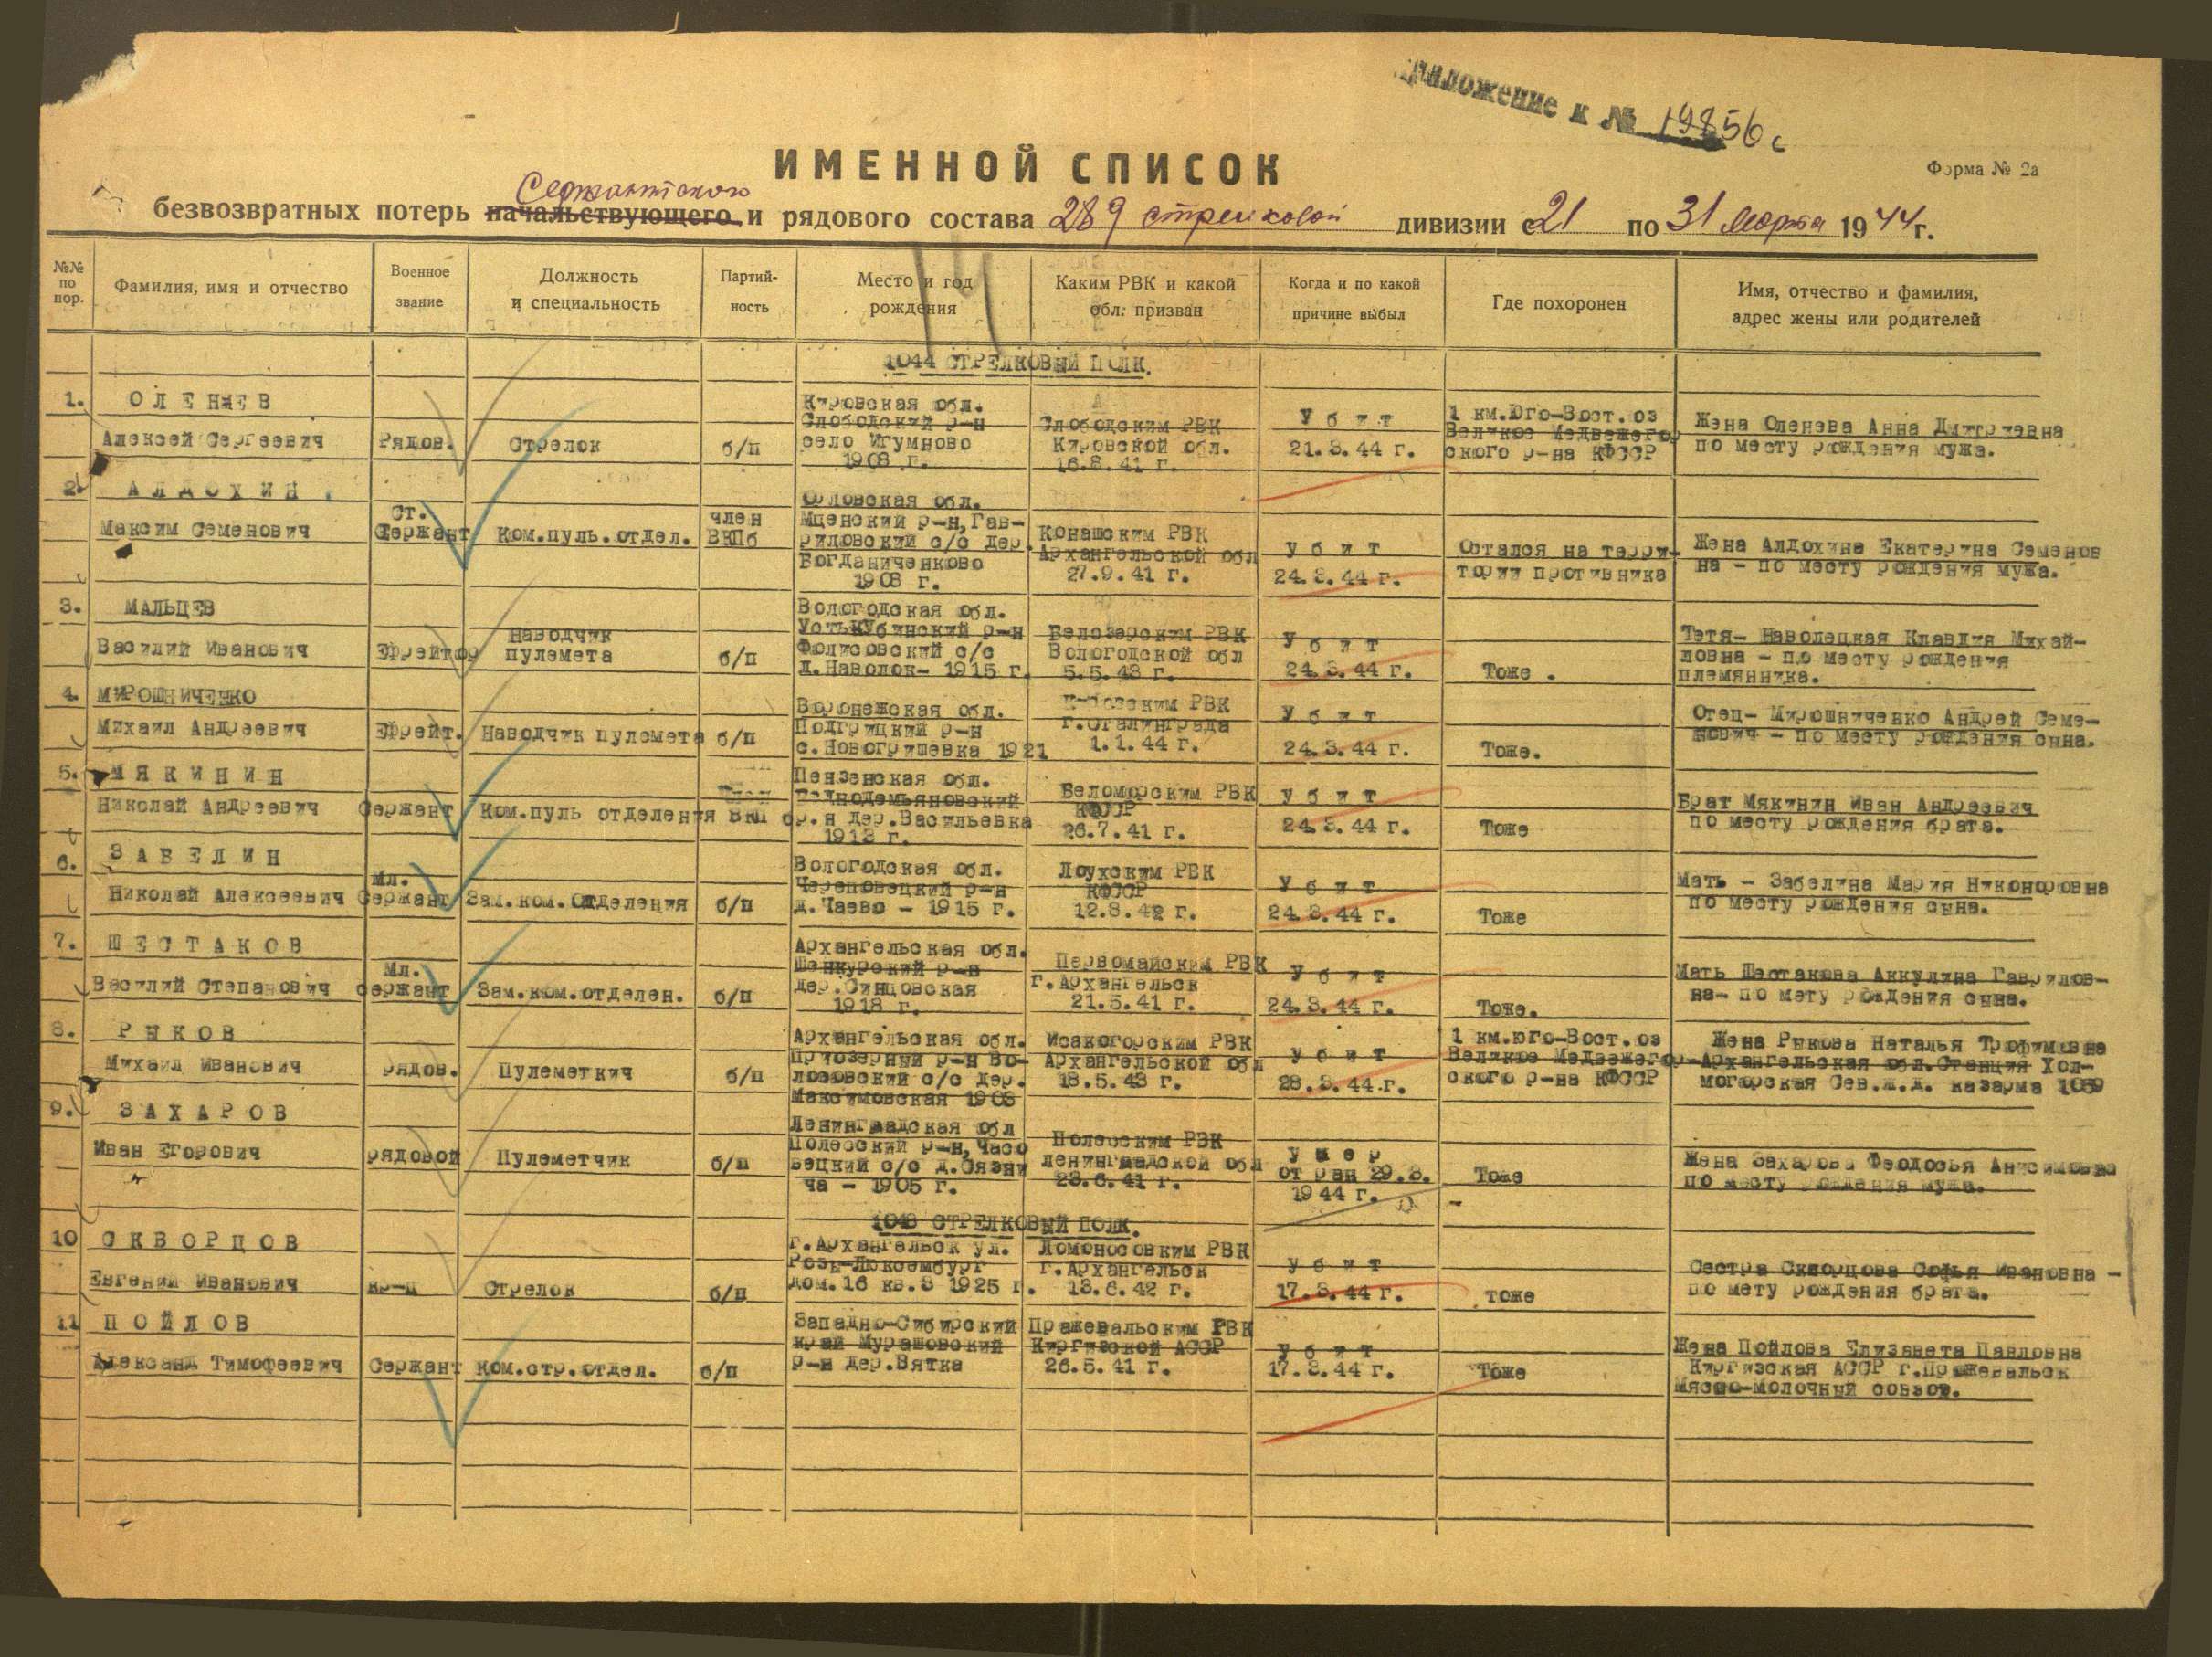 Приложение к № 19856 с
ИМЕННОЙ СПИСОК
Форма № 2а
Сержантского
безвозвратных потерь начальствующего и рядового состава 289 стрелковой дивизии с 21 по 31 Марта 1944 г.
№№ по пор.
Фамилия, имя и отчество
Военное звание
Должность и специальность
Партий-ность
Место и год рождения
Каким РВК и какой обл. призван
Когда и по какой причине выбыл
Где похоронен
Имя, отчество и фамилия, адрес жены или родителей
1044 СТРЕЛКОВЫЙ ПОЛК.
1. ОЛЕНЕВ
Алексей Сергеевич
Рядов.
Стрелок
б/п
Кировская обл.
Слободский р-н
село Игумново
1908 г.
Слободским РВК
Кировской обл.
16.8.41 г.
Убит
21.3.44 г.
1 км.Юго-Вост. оз
Великое Медвежегор
ского р-на КФССР
Жена Оленева Анна Дмитриевна
по месту рождения мужа.
2. АЛДОХИН
Максим Семенович
Ст.
Сержант
Ком.пуль.отдел.
член
ВКПб
Орловская обл.
Мценский р-н, Гав-
риловский с/с дер.
Богданиченково
1908 г.
Конашским РВК
Архангельской обл
27.9.41 г.
убит
24.3.44 г.
Остался на терри-
тории противника
Жена Алдохина Екатерина Семенов
на - по месту рождения мужа.
3. МАЛЬЦЕВ
Василий Иванович
Ефрейтор
Наводчик
пулемета
б/п
Вологодская обл.
УстьКубинский р-н
Филисовский с/с
д.Наволок- 1915 г.
Белозерским РВК
Вологодской обл
5.5.43 г.
Убит
24.3.44 г.
Тоже .
Тетя- Наволецкая Клавдия Михай-
ловна - по месту рождения
племянника.
4. МИРОШНИЧЕНКО
Михаил Андреевич
Ефрейт.
Наводчик пулемета
б/п
Воронежская обл.
Подгрицкий р-н
с.Новогришевка 1921
РВК
г.Сталинграда
1.1.44 г.
Убит
24.3.44 г.
Тоже.
Отец- Мирошниченко Андрей Семе-
нович - по месту рождения сына.
5. МЯКИНИН
Николай Андреевич
Сержант
Ком.пуль отделения
Член
ВКП б
Пензенская обл.
Беднодемьяновский
р.н дер.Васильевка
1913 г.
Беломорским РВК
КФССР
26.7.41 г.
убит
24.3.44 г.
Тоже
Брат Мякинин Иван Андреевич
по месту рождения брата.
6. ЗАБЕЛИН
Николай Алексеевич
Мл.
Сержант
Зам.ком.Отделения
б/п
Вологодская обл.
Череповецкий р-н
д.Чаево - 1915 г.
Лоухским РВК
КФССР
12.8.42 г.
Убит
24.3.44 г.
Тоже
Мать - Забелина Мария Никоноровна
по месту рождения сына.
7. ШЕСТАКОВ
Василий Степанович
Мл.
сержант
Зам.ком.отделен.
б/п
Архангельская обл.
Шенкурский р-н
дер.Синцовская
1918 г.
Первомайским РВК
г.Архангельск
21.5.41 г.
Убит
24.3.44 г.
Тоже.
Мать Шестакова Аккулина Гаврилов-
на- по мету рождения сына.
8. РЫКОВ
Михаил Иванович
рядов.
Пулеметкич
б/п
Архангельская обл.
Приозерный р-н Во-
лосовский с/с дер.
Максимовская 1908
Исакогорским РВК
Архангельской обл
18.5.43 г.
убит
28.3.44.г.
1 км.юго-Вост.оз
Великое Медвежегор-
ского р-на КФССР
Жена Рыкова Наталья Трофимовна
Архангельская обл.Станция Хол-
могорская Сев.ж.д. казарма 1059
9. ЗАХАРОВ
Иван Егорович
рядовой
Пулеметчик
б/п
Ленинградская обл
Полесский р-н, Часо
вецкий с/с д.Вязни
ча - 1905 г.
Полесским РВК
ленинградской обл
23.6.41 г.
умер
от ран 29.3.
1944 г.
Тоже
Жена Захарова Феодосья Анисимовна
по месту рождения мужа.
1048 СТРЕЛКОВЫЙ ПОЛК.
10 СКВОРЦОВ
Евгений Иванович
кр-ц
Стрелок
б/п
г.Архангельск ул.
Розы-Люксембург
дом.16 кв.3 1925 г.
Ломоносовким РВК
г.Архангельск
13.6.42 г.
убит
17.3.44 г.
тоже
Сестра Скворцова Софья Ивановна -
по мету рождения брата.
11 ПОЙЛОВ
Александ Тимофеевич
Сержант
ком.стр.отдел.
б/п
Западно-Сибирский
край Мурашовский
р-н дер.Вятка
Пражевальским РВК
Киргизской АССР
26.5.41 г.
убит
17.3.44 г.
Тоже
Жена Пойлова Елизавета Павловна
Киргизская АССР г.Пржевальск
Мясно-молочный совхоз.